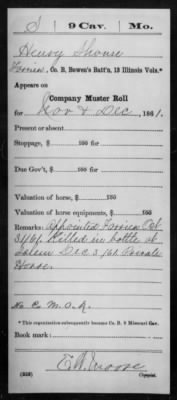 S | 9 Cav. | Mo.
Henry Shouse
Farrier, Co. B, Bowen's Batt'n, 13 Illinois Vols.*
Appears on
Company Muster Roll
for Nov & Dec, 1861.
Present or absent
Stoppage, $ 100 for
Due Gov't, $ 100 for
Valuation of horse, $ 100
Valuation of horse equipments, $ 100
Remarks: Appointed Farrier Oct
31/61. Killed in battle at
Salem Dec 3/61 Private
Horse.
No Co M. O. R.
*This organization subsequently became Co. B, 9 Missouri Cav.
Book mark:
E. W. Moore
(358) Copyist.